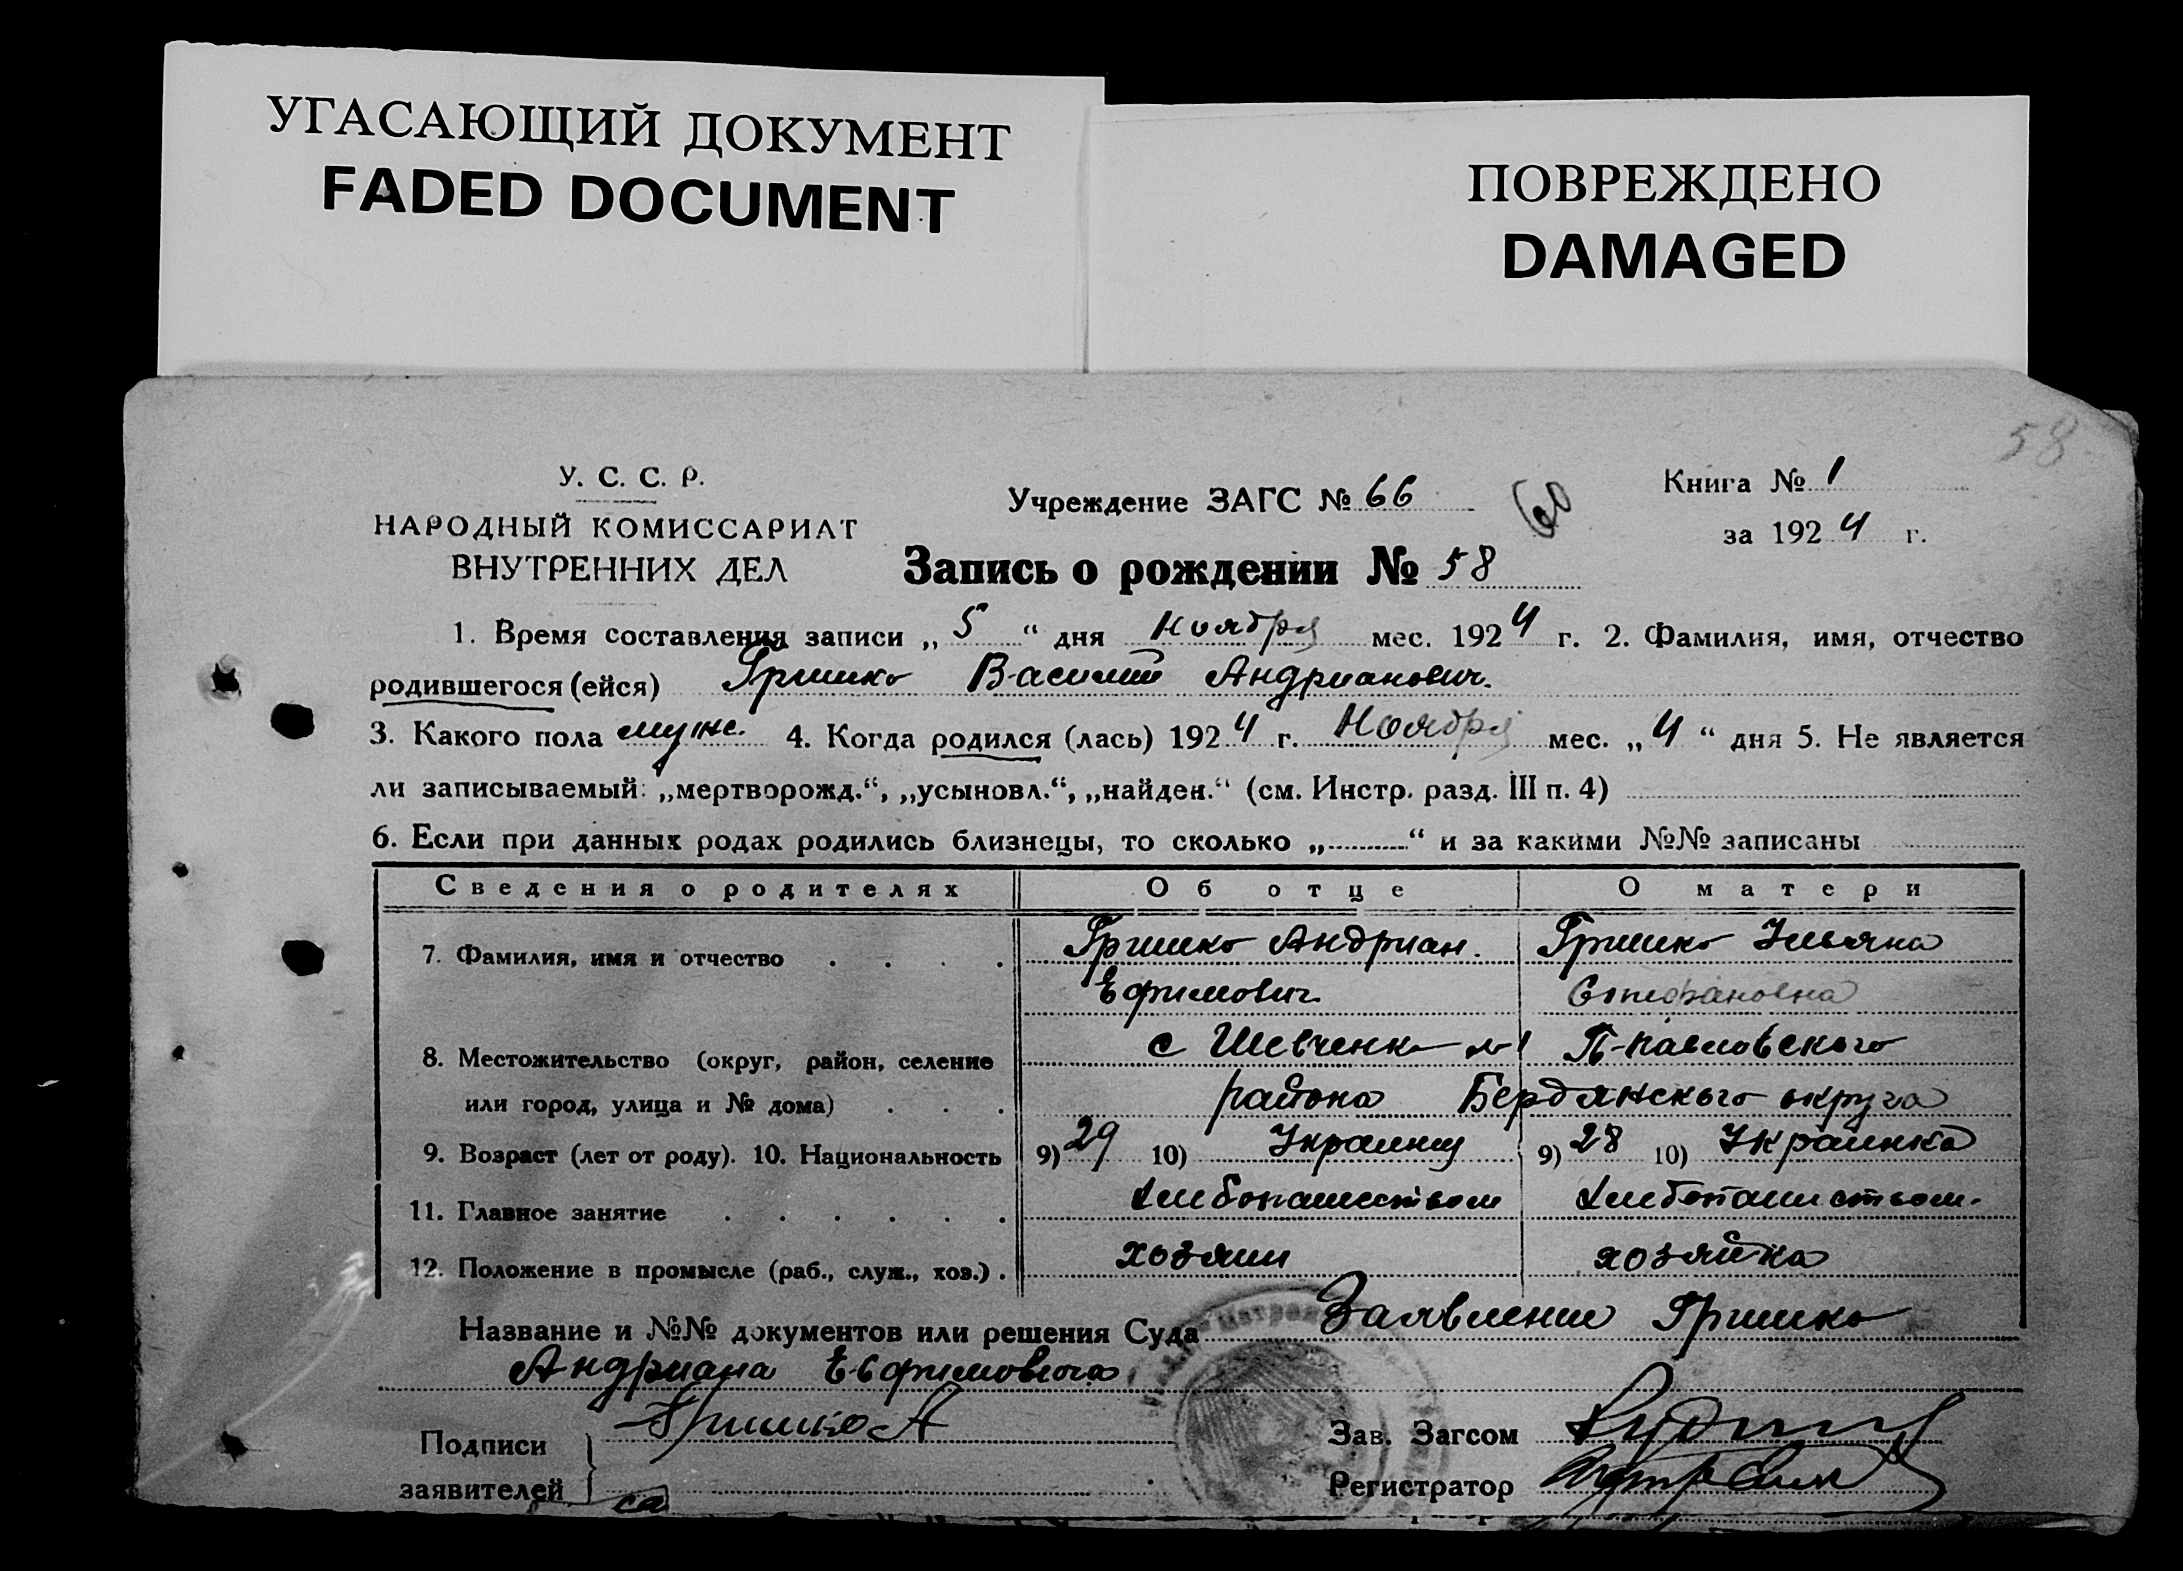 УГАСАЮЩИЙ ДОКУМЕНТ
FADED DOCUMENT
ПОВРЕЖДЕНО
DAMAGED
58
У. С. С. Р.
НАРОДНЫЙ КОМИССАРИАТ
ВНУТРЕННИХ ДЕЛ
Учреждение ЗАГС № 66
60
Книга № 1
за 1924 г.
Запись о рождении № 58
1. Время составления записи „5“ дня Ноября мес. 1924 г. 2. Фамилия, имя, отчество
родившегося (ейся) Гришко Василий Андрианович.
3. Какого пола муже. 4. Когда родился (лась) 1924 г. Ноября мес. „4“ дня 5. Не является
ли записываемый: „мертворожд.“, „усыновл.“, „найден.“ (см. Инстр. разд. III п. 4)
6. Если при данных родах родились близнецы, то сколько „..........“ и за какими №№ записаны
Сведения о родителях Об отце О матери
7. Фамилия, имя и отчество . . . . Гришко Андриан. Гришко Ульяна
Ефимович Стефановна
8. Местожительство (округ, район, селение с Шевченко №1 П-Павловского
или город, улица и № дома) . . . района Бердянского округа
9. Возраст (лет от роду). 10. Национальность 9) 29 10) Украинец 9) 28 10) Украинка
11. Главное занятие . . . . . . Хлебопашеством Хлебопашством.
12. Положение в промысле (раб., служ., хоз.) . хозяин хозяйка
Название и №№ документов или решения Суда Заявление Гришко
Андриана Ефимовича
Подписи Гришко А Зав. Загсом
заявителей Регистратор